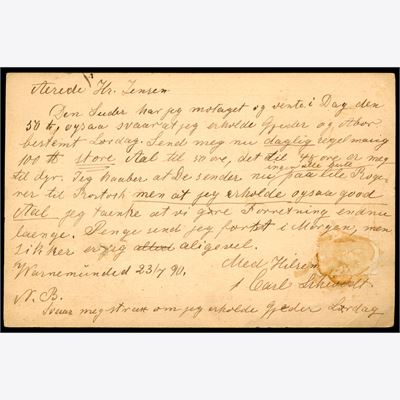 Aerede Hr. Jensen
Den Suder har jeg motaget og vente i Dag den
50 ℔, oysaa svaar at jeg erholde Gjeder og Abor
bestemt Lördag. Send mej nu daglig regelmaisig
100 ℔ store Aal til 50 ore, det til 45 ore er mej
men alle
til dyr. Jeg haaber at De sender nu paa
til Rostosk men at jeg erholde oysaa good
Aal jeg taenke at vi göre Forretning endnu
laenge. Penge send jeg forst i Morgen, men
sikker er jeg aligevel.
Warnemünde d 23/7 90.
Med Hilsen
Carl
N. B.
Svaar meg strax om jeg erholde Gjeder Lordag